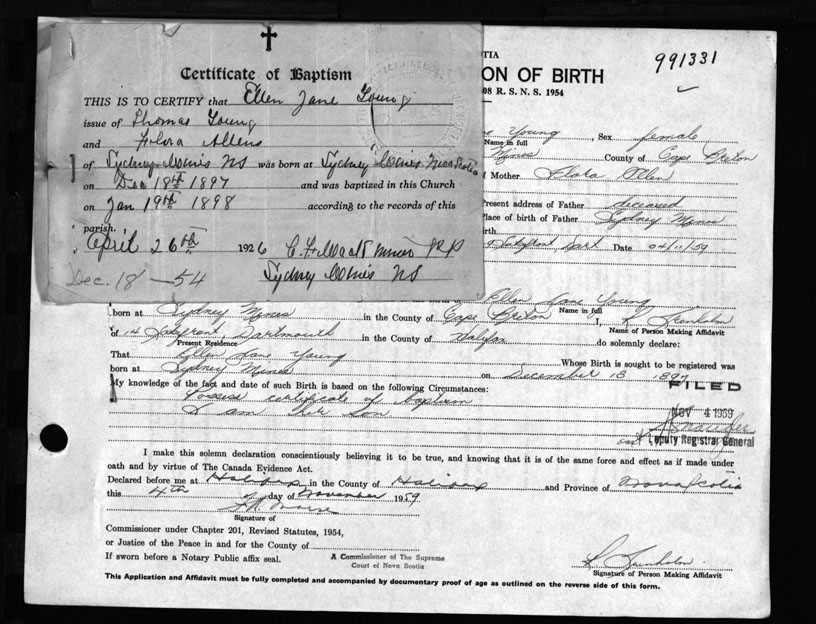 Certificate of Baptism
THIS IS TO CERTIFY that Ellen Jane Young
issue of Thomas Young
and Flora Allens
of Sydney Mines NS was born at Sydney Mines Nova Scotia
on Dec 18th 1897 and was baptized in this Church
on Jan 19th 1898 according to the records of this
parish.
April 26th 1926 P P
Sydney Mines NS
Dec. 18 - 54
TIA
991331
ON OF BIRTH
08 R. S. N. S. 1954
ne Young, Sex female
Name in full
Mines County of Cape Breton
of Mother Flora Allen
Present address of Father deceased
Place of birth of Father Sydney Mines
Birth
Dart Date 04/11/59
Ellen Jane Young
Name in full
born at Sydney Mines in the County of Cape Breton I,
Name of Person Making Affidavit
of 14 Dartmouth in the County of Halifax do solemnly declare:
Present Residence
That Ellen Jane Young Whose Birth is sought to be registered was
born at Sydney Mines on December 18 1897
FILED
My knowledge of the fact and date of such Birth is based on the following Circumstances:
Possess certificate of baptism
I am her son
NOV 4 1959
Deputy Registrar General
I make this solemn declaration conscientiously believing it to be true, and knowing that it is of the same force and effect as if made under
oath and by virtue of The Canada Evidence Act.
Declared before me at Halifax in the County of Halifax and Province of Nova Scotia
this 4th day of November 1959
Signature of
Commissioner under Chapter 201, Revised Statutes, 1954,
or Justice of the Peace in and for the County of
If sworn before a Notary Public affix seal.
A Commissioner of The Supreme
Court of Nova Scotia
Signature of Person Making Affidavit
This Application and Affidavit must be fully completed and accompanied by documentary proof of age as outlined on the reverse side of this form.